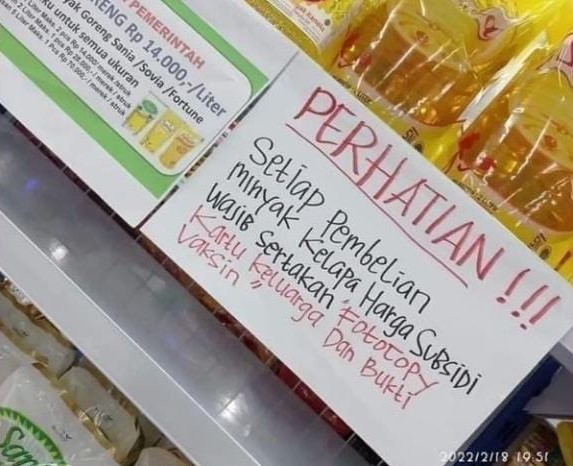 PEMERINTAH
RENG Rp 14.000.-/Liter
yak Goreng Sania /Sovia /Fortune
ku untuk semua ukuran
PERHATIAN !!!
Setiap Pembelian
minyak Kelapa Harga Subsidi
wajib Sertakan "FOTOCOPY
Kartu Keluarga Dan Bukti
Vaksin "
2022/2/18 19:51